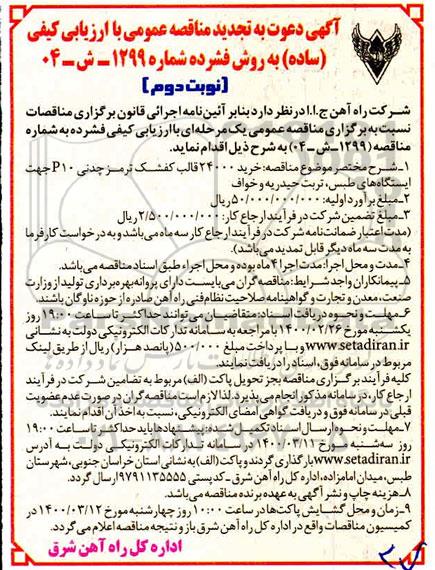 آگهی دعوت به تجدید مناقصه عمومی با ارزیابی کیفی
(ساده) به روش فشرده شماره ۱۲۹۹ – ش – ۰۴
(نوبت دوم)
شرکت راه آهن ج.ا.ا در نظر دارد بنابر آئین نامه اجرائی قانون برگزاری مناقصات
نسبت به برگزاری مناقصه عمومی یک مرحله ای با ارزیابی کیفی فشرده به شماره
مناقصه (۱۲۹۹–ش–۰۴) به شرح ذیل اقدام نماید.
۱–شرح مختصر موضوع مناقصه: خرید ۲۴۰۰۰ قالب کفشک ترمز چدنی P10 جهت
ایستگاه های طبس، تربت حیدریه و خواف
۲–مبلغ برآورد اولیه: ۵۰/۰۰۰/۰۰۰/۰۰۰ ریال
۳–مبلغ تضمین شرکت در فرآیند ارجاع کار: ۲/۵۰۰/۰۰۰/۰۰۰ ریال
(مدت اعتبار ضمانت نامه شرکت در فرآیند ارجاع کار سه ماه می باشد و به درخواست کارفرما
به مدت سه ماه دیگر قابل تمدید می باشد).
۴–مدت و محل اجرا: مدت اجرا ۴ ماه بوده و محل اجراء طبق اسناد مناقصه می باشد.
۵–پیمانکاران واجد شرایط: مناقصه گران می بایست دارای پروانه بهره برداری تولید از وزارت
صنعت، معدن و تجارت و گواهینامه صلاحیت نظام فنی راه آهن صادره از حوزه ناوگان باشند.
۶–مهلت و نحوه دریافت اسناد: متقاضیان می توانند حداکثر تا ساعت ۱۹:۰۰ روز
یکشنبه مورخ ۱۴۰۰/۰۲/۲۶ با مراجعه به سامانه تدارکات الکترونیکی دولت به نشانی
www.setadiran.ir و با پرداخت مبلغ ۵۰۰/۰۰۰ (پانصد هزار) ریال از طریق لینک
مربوط در سامانه فوق، اسناد را دریافت نمایند.
کلیه فرآیند برگزاری مناقصه بجز تحویل پاکت (الف) مربوط به تضامین شرکت در فرآیند
ارجاع کار، در سامانه مذکور انجام می پذیرد. لذا لازم است مناقصه گران در صورت عدم عضویت
قبلی در سامانه فوق و دریافت گواهی امضای الکترونیکی، نسبت به اخذ آن اقدام نمایند.
۷–مهلت و نحوه ارسال اسناد: تکمیل شده و پیشنهادها باید حداکثر تا ساعت ۱۹:۰۰
روز سه شنبه مورخ ۱۴۰۰/۰۳/۱۱ در سامانه تدارکات الکترونیکی دولت به آدرس
www.setadiran.ir بارگذاری گردند و پاکت (الف) به نشانی استان خراسان جنوبی، شهرستان
طبس، میدان امامزاده، اداره کل راه آهن شرق – کدپستی ۹۷۹۱۱۳۵۵۵۵ ارسال گردد.
۸–هزینه چاپ و نشر آگهی به عهده برنده مناقصه می باشد.
۹–زمان و محل گشایش پاکت ها در ساعت ۱۰:۰۰ روز چهارشنبه مورخ ۱۴۰۰/۰۳/۱۲ در
کمیسیون مناقصات واقع در اداره کل راه آهن شرق باز و نتیجه مناقصه اعلام می گردد.
اداره کل راه آهن شرق